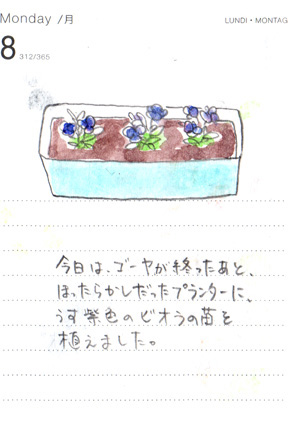 Monday /月
LUNDI・MONTAG
8 312/365
今日は、ゴーヤが終ったあと、
ほったらかしだったプランターに、
うす紫色のビオラの苗を
植えました。